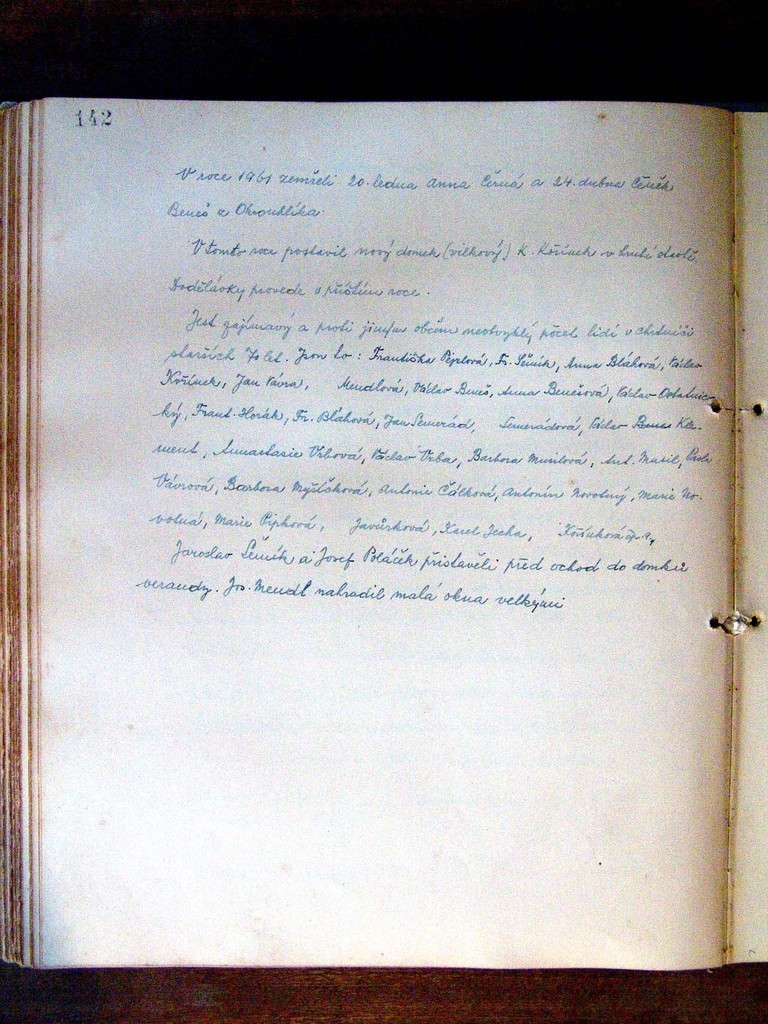 142
V roce 1961 zemřeli 20. ledna Anna Černá a 24. dubna Čeněk
Beneš z Okrouhlíka.
V tomto roce postavil nový domek (vilkový) K. Kořínek v hrubé stavbě.
Dodělávky provede v příštím roce.
Jest zajímavý a proti jiným obcím neobvyklý počet lidí v
starších 70 let. Jsou to: Františka Fr. Anna Bláhová, Václav
Kořínek, Jan Vávra, Mendlová, Václav Beneš, Anna Benešová, Václav
ký, Frant. Horák, Fr. Bláhová, Jan Semerád, Semerádová, Václav Beneš Kle-
ment, Annastasie Vrbová, Václav Vrba, Barbora Musilová, Ant. Musil,
Vávrová, Barbora Antonie Čálková, Antonín Novotný, Marie No-
votná, Marie Javůrková, Karel Jecha, Kořínková
Jaroslav a Josef Poláček přistavěli před vchod do domků
verandy. Jos. Mendl nahradil malá okna velkými